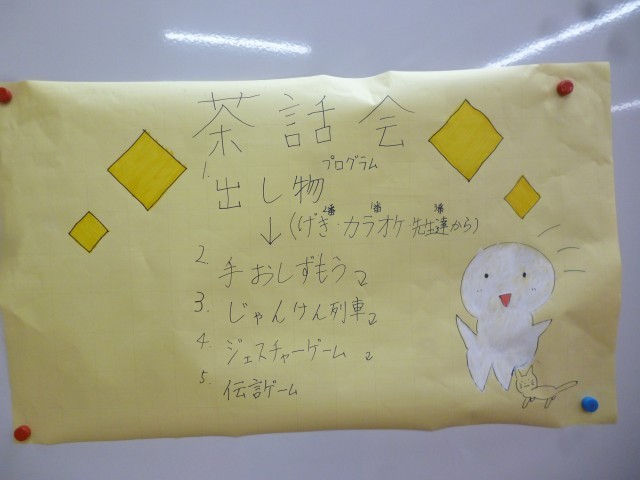 茶話会
プログラム
1. 出し物
2番 1番 3番
↓(げき・カラオケ・先生達から)
2. 手おしずもう 2
3. じゃんけん列車 2
4. ジェスチャーゲーム 2
5. 伝言ゲーム